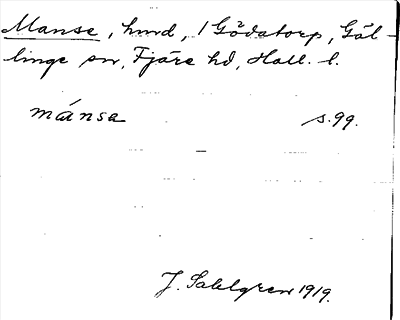 Manse, hund, / Gödatorp, Gäl-
linge sn, Fjäre hd, Hall. l.
mánsa s. 99.
J. Sahlgren 1919.